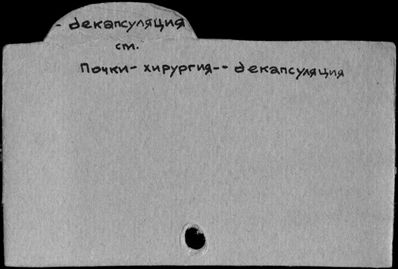 - декапсуляция
ст.
Почки- хирургия-- декапсуляция